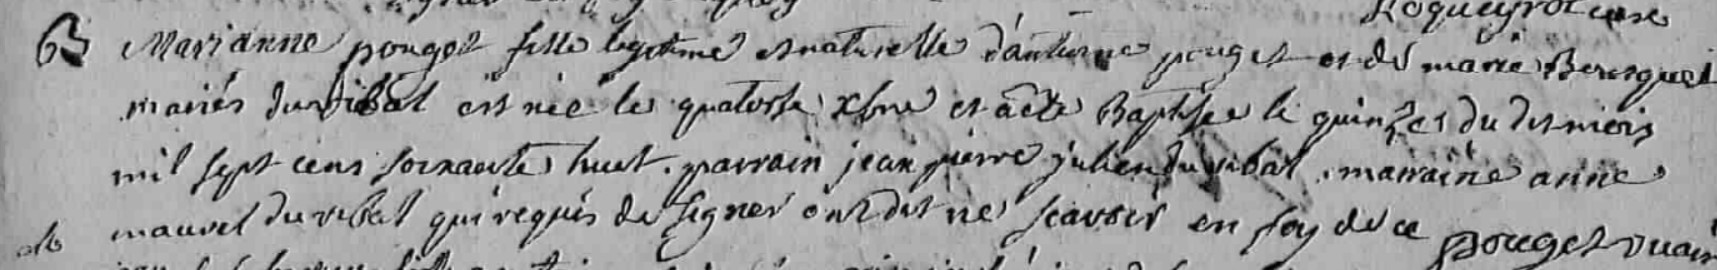 Roqueyrol cure
63 Marianne pouget fille legitime et naturelle d'antoine pouget et de marie Bousquet
mariés du vibal est née le quatorse xbre et a été Baptisée le quinze du dit mois
mil sept cens soixante huit. parrain jean pierre julien du vibal. marraine anne
mauvel du vibal qui requis de signer ont dit ne scavoir en foy de ce pouget vicaire